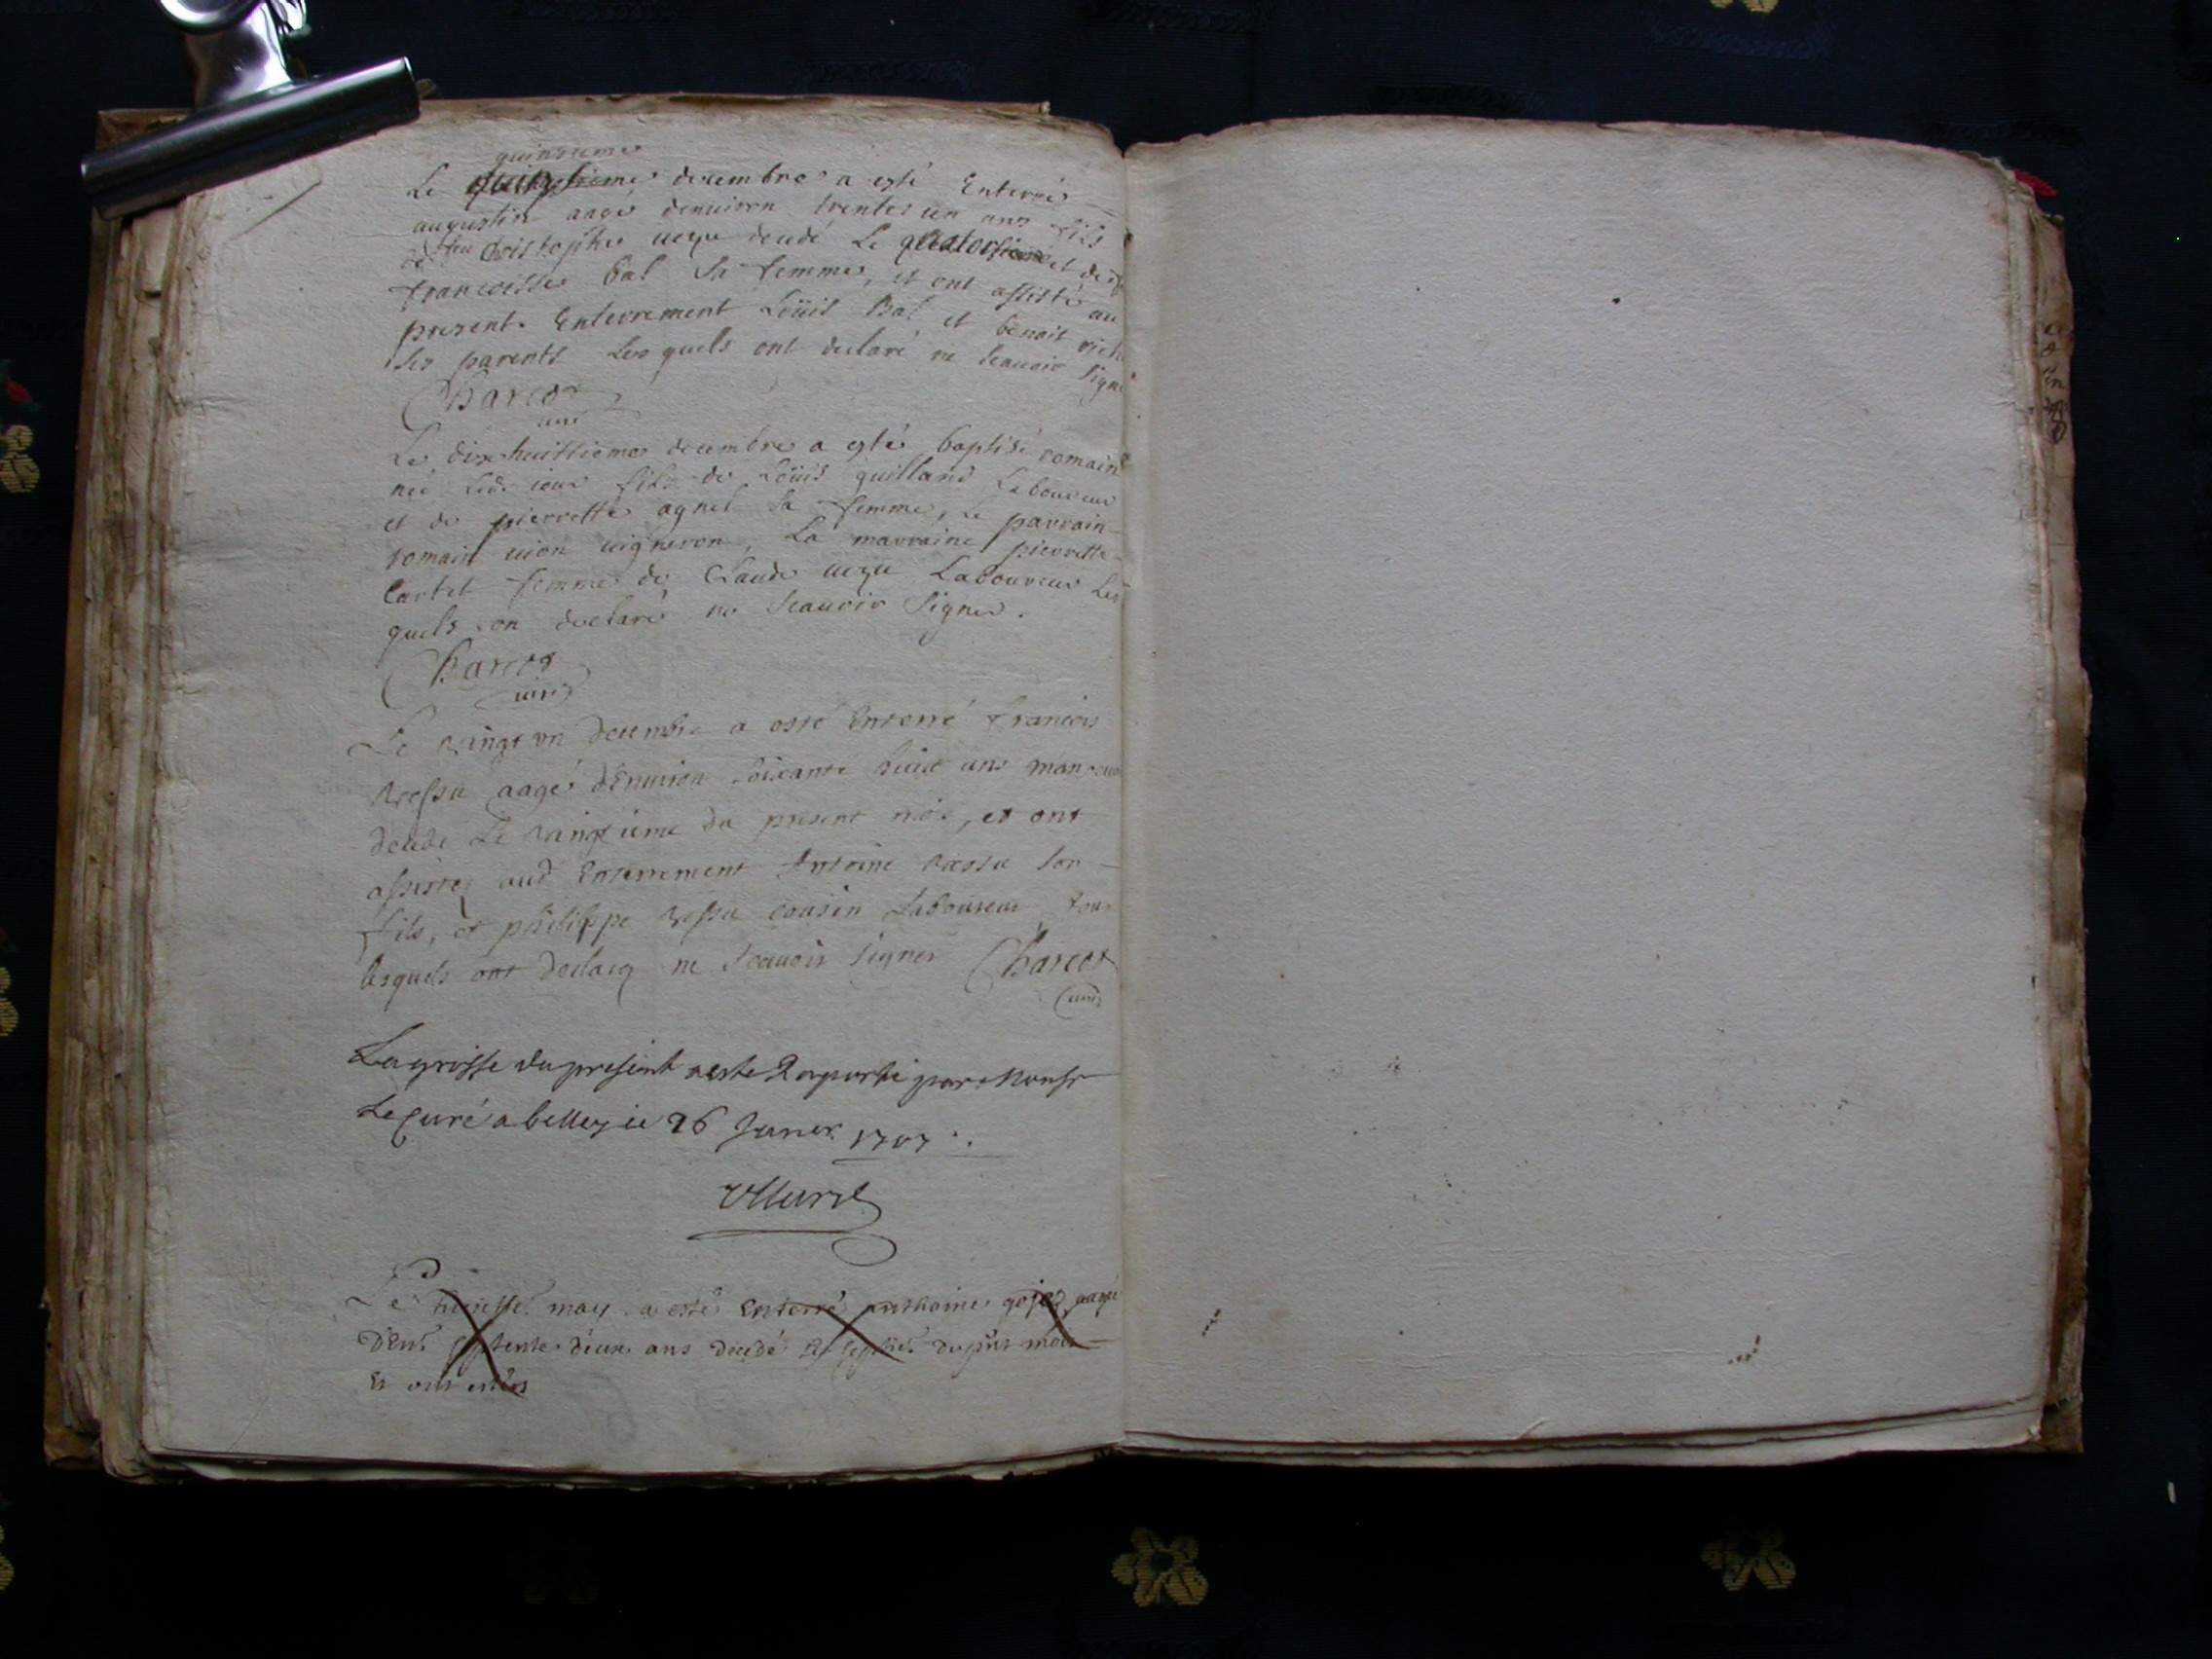 quinzieme
Le decembre a esté Enterré
augustin aagé denuiron trentes un ans fils
de feu Cristophe ueyu decedé Le quatorsieme et de
francoisse bal Sa femme, et ont assisté au
present Enterrement Loüis Bal et benoit
Ses parents Les quels ont declaré ne Scauoir Signe
Charcot
curé
Le dixhuittieme decembre a esté baptisé romain
né led. iour fils de Loüis guilland Laboureur
et de pierrette agnel Sa femme, Le parrain
romain uion uigneron, La marraine pierrette
Cartet femme de Claude ueyu Laboureur Les
quels on declaré ne Scauoir Signer.
Charcot
curé
Le vingt un decembre a esté Enterré francois
aagé d'Enuiron Soixante huict ans
decede Le vingtieme du present mois, et ont
assistez aud Enterrement Antoine Son
fils, et philippe cousin Laboureur tous
lesquels ont declarez ne Scauoir Signer Charcot
curé
La grosse du present a este Raporté par Monsr
Le Curé a belley ce 26 Janer 1707
Le may a esté Enterré anthoine aagé
d'Env. septente deux ans decedé Le dupnt mois
Et ont